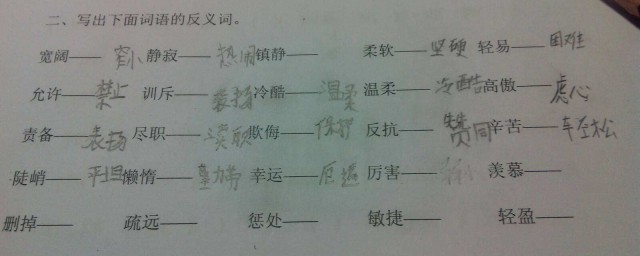 二、写出下面词语的反义词。
宽阔——窄小 静寂——热闹 镇静—— 柔软——坚硬 轻易——困难
允许——禁止 训斥——表扬 冷酷——温柔 温柔——冷酷 高傲——虚心
责备——表扬 尽职——失职 欺侮——保护 反抗——赞同 辛苦——轻松
陡峭——平坦 懒惰——勤劳 幸运——厄运 厉害—— 羡慕——
删掉—— 疏远—— 惩处—— 敏捷—— 轻盈——